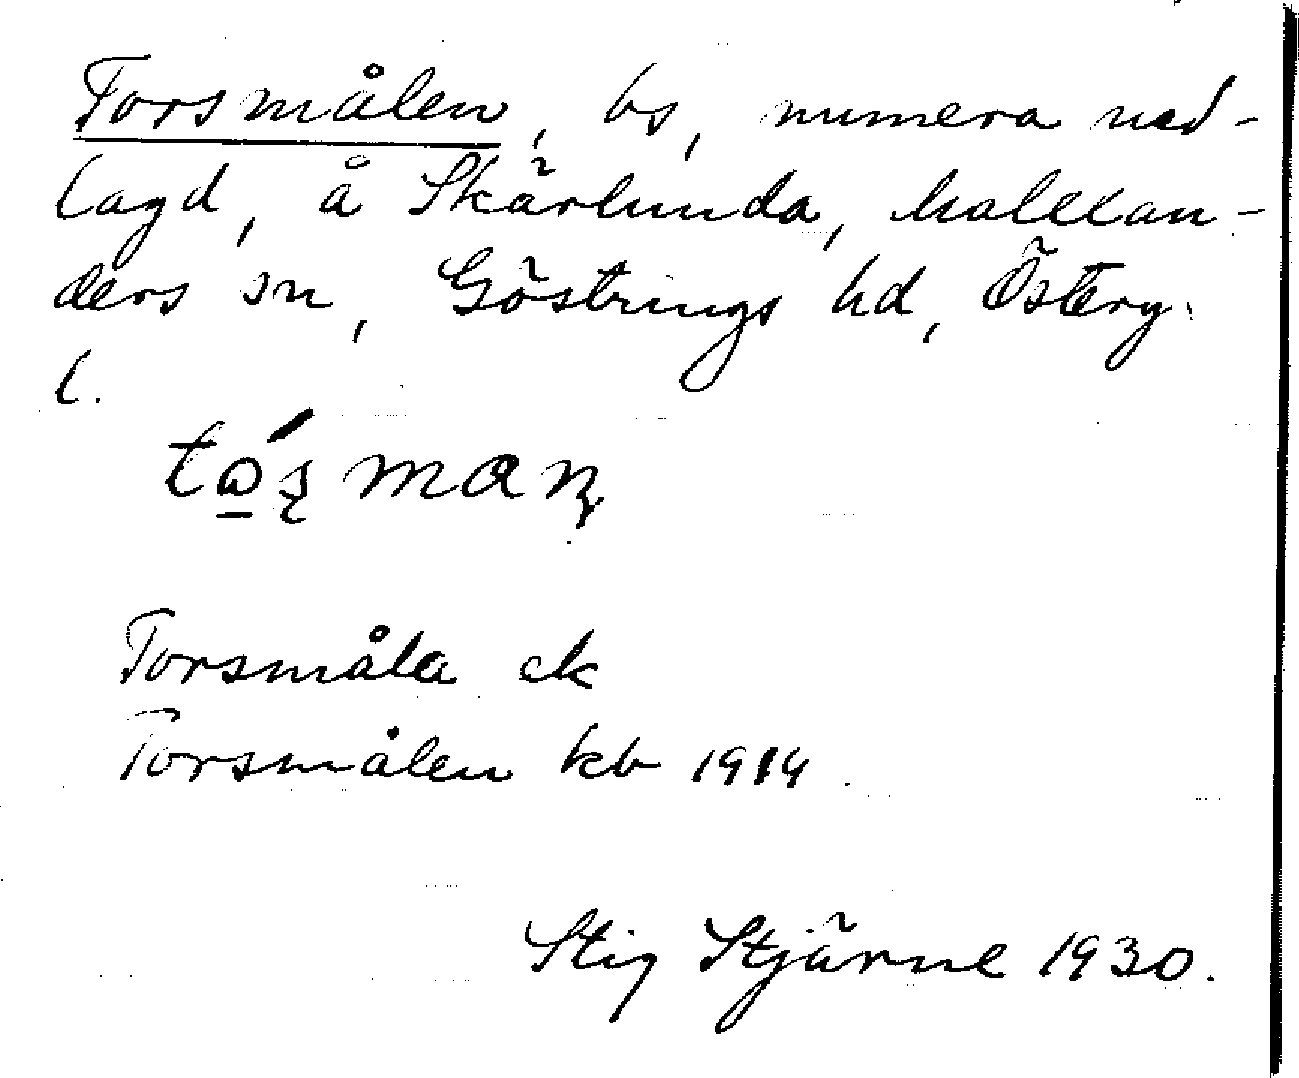 Torsmålen, bs, numera ned-
lagd, å Skärlunda, Malexan-
ders sn, Göstrings hd, Österg.
l.
Torsmåla ek
Torsmålen kb 1914.
Stig Stjärne 1930.